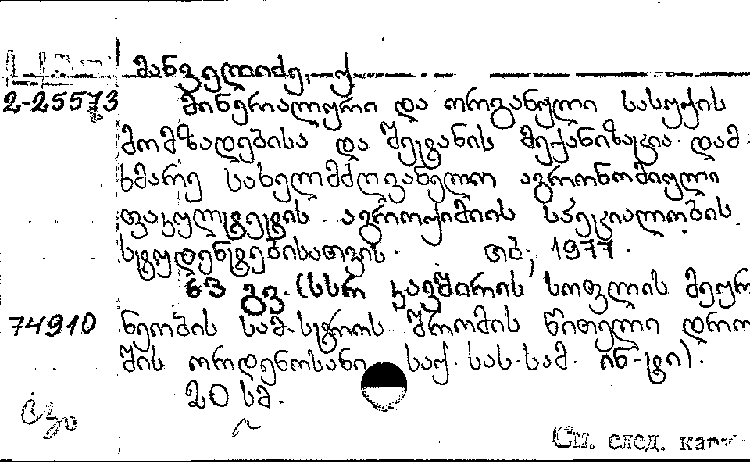 მანველიძე, ქ
2-25573
მინერალური და ორგანული სასუქის
მომზადებისა და შეტანის მექანიზაცია. დამ-
ხმარე სახელმძღვანელო აგრონომიული
ფაკულტეტის აგროქიმიის სპეციალობის
სტუდენტებისათვის. თბ., 1977.
63 გვ. (სსრ კავშირის სოფლის მეურ
74910 ნეობის სამ-სტროს შრომის წითელი დრო
შის ორდენოსანი საქ. სას.-სამ. ინ-ტი).
20 სმ.
См. след. карт